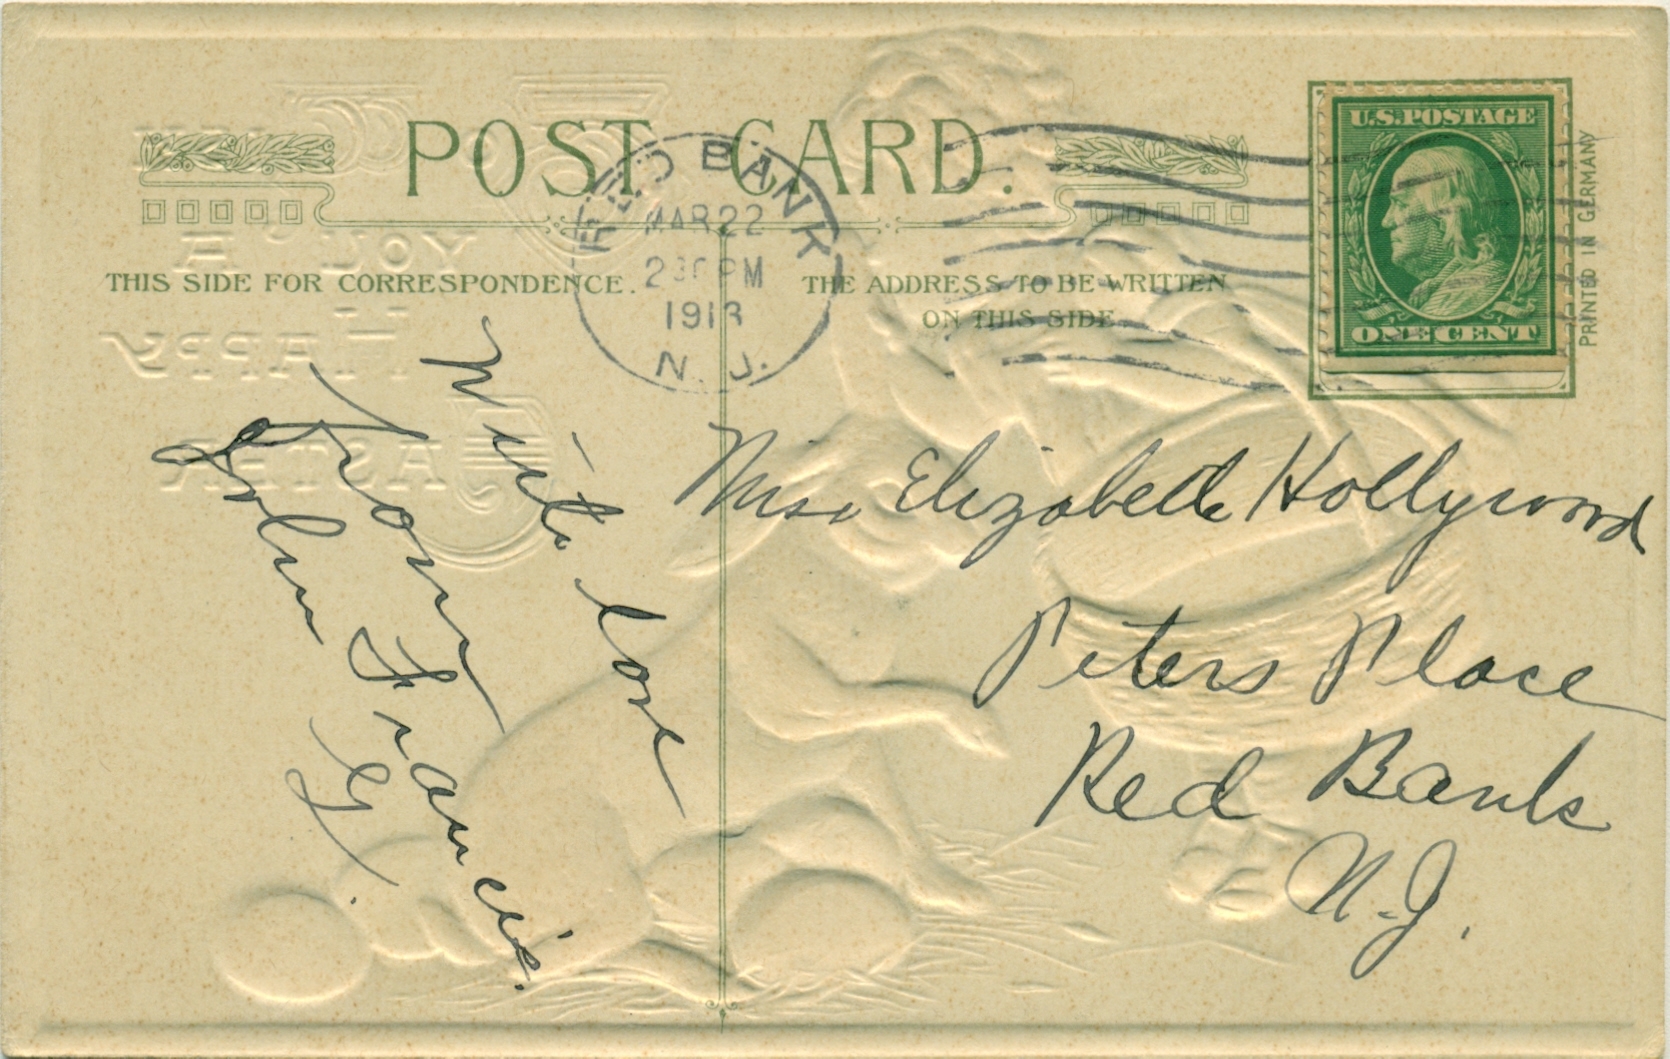 POST CARD.
RED BANK
MAR 22
2 30 PM
1913
N. J.
U.S. POSTAGE
ONE CENT
PRINTED IN GERMANY
THIS SIDE FOR CORRESPONDENCE.
THE ADDRESS TO BE WRITTEN
ON THIS SIDE
With love
from
John Francis.
G.
Miss Elizabeth Hollywood
Peters Place
Red Bank
N.J.
YOU A
HAPPY
EASTER